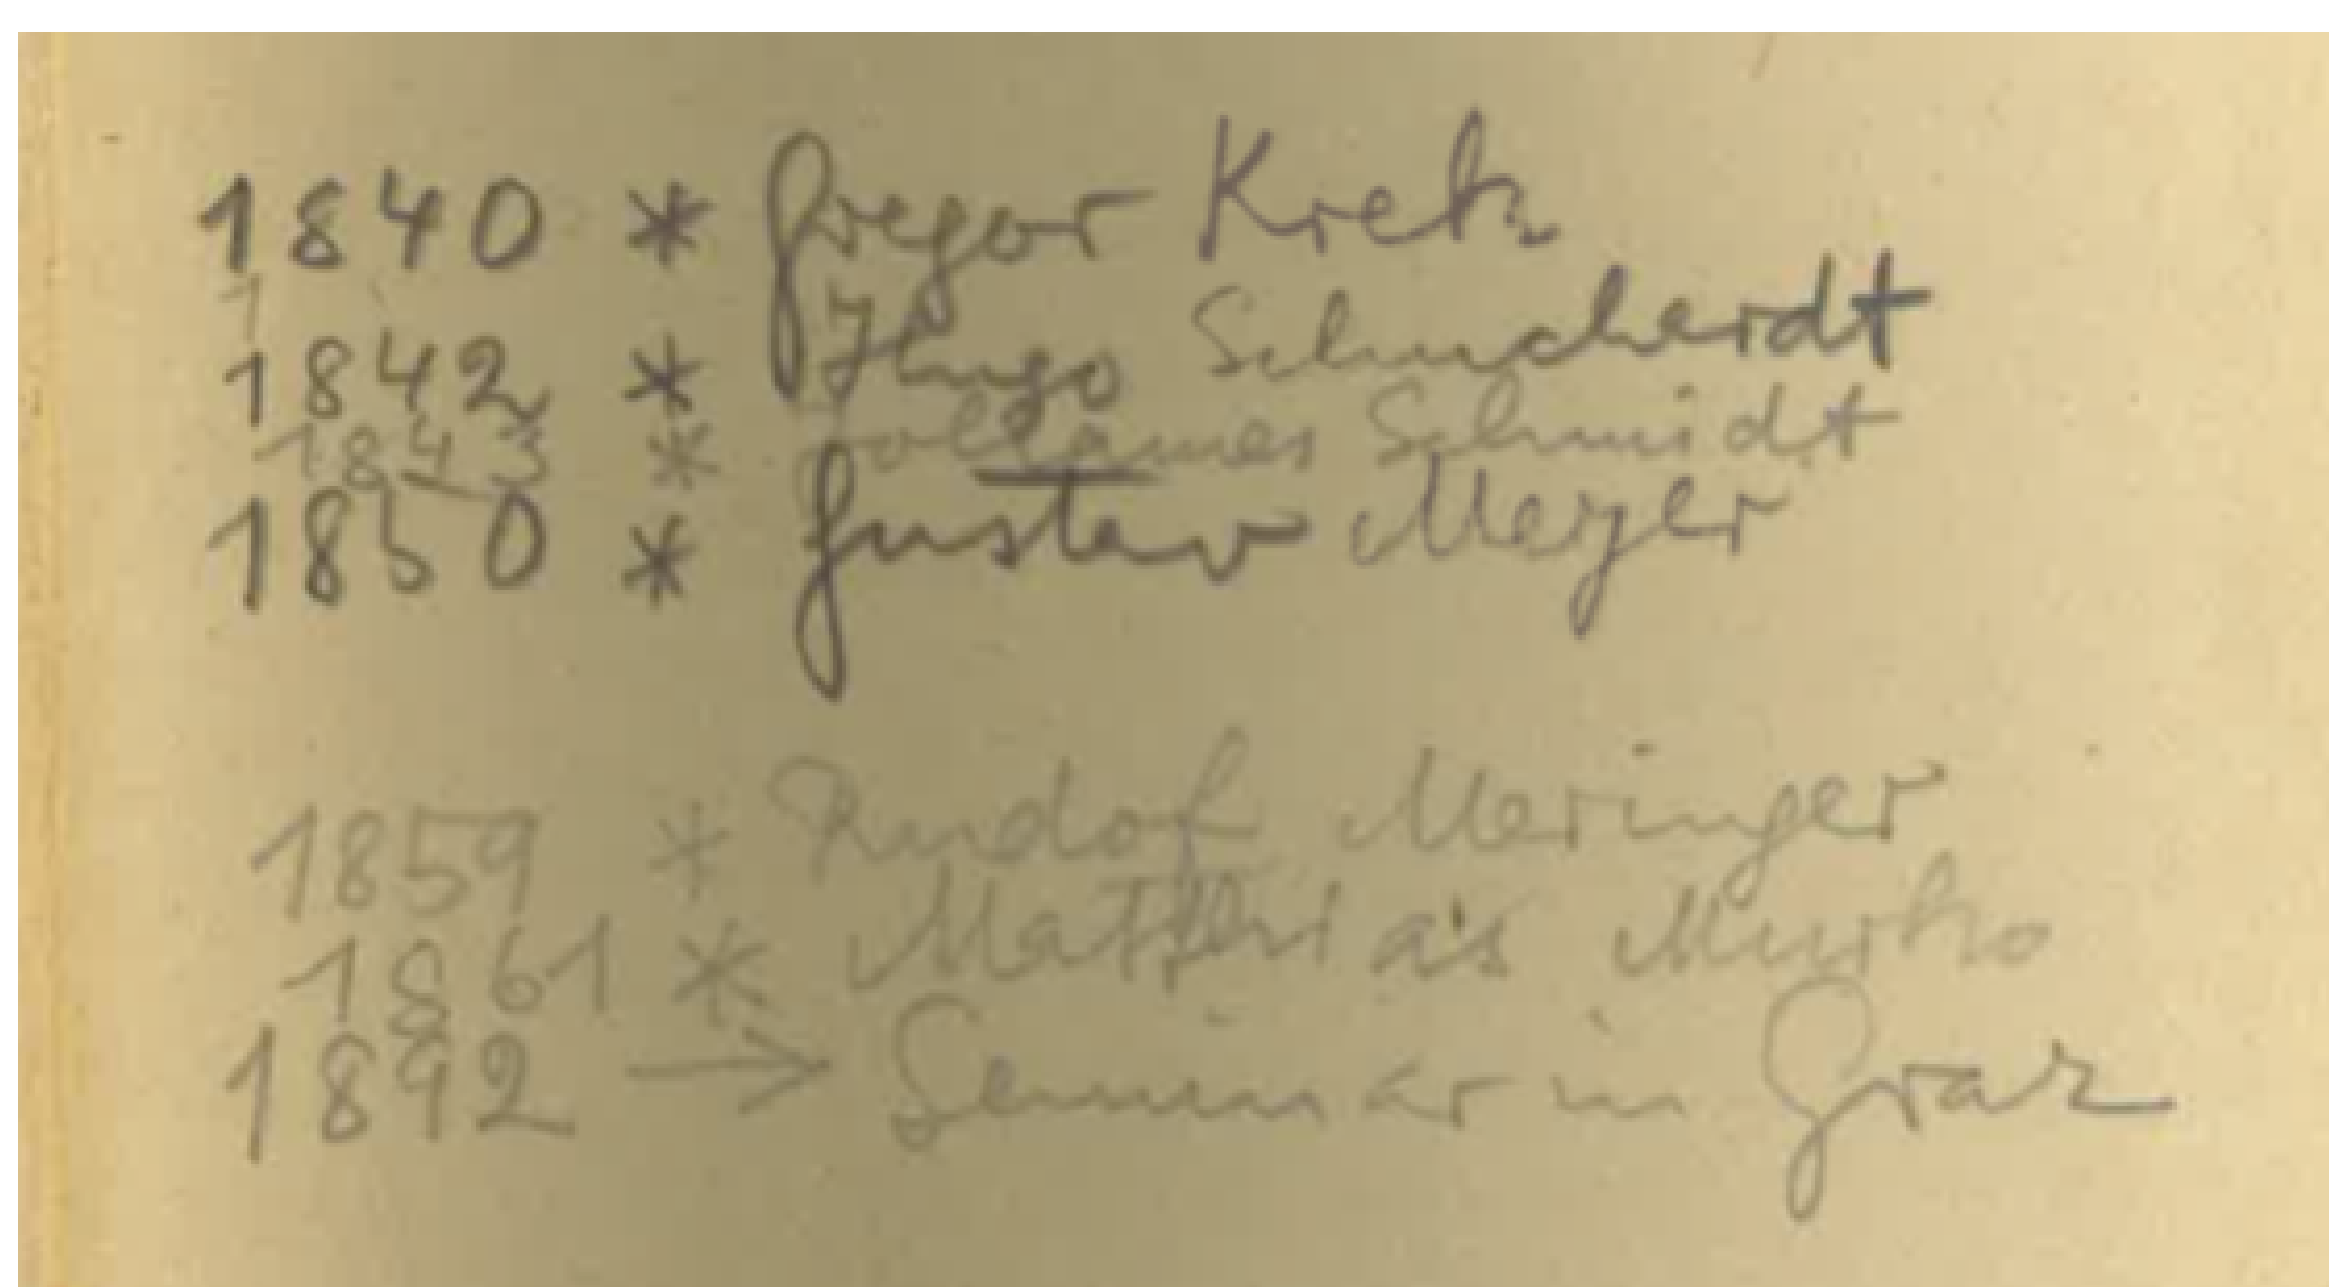 1840 * Gregor Krek
1
1842 * Hugo Schuchardt
1843 * Schmidt
1850 * Gustav Meyer
1859 * Rudolf Meringer
1861 * Matthias Murko
1892 → Seminar in Graz